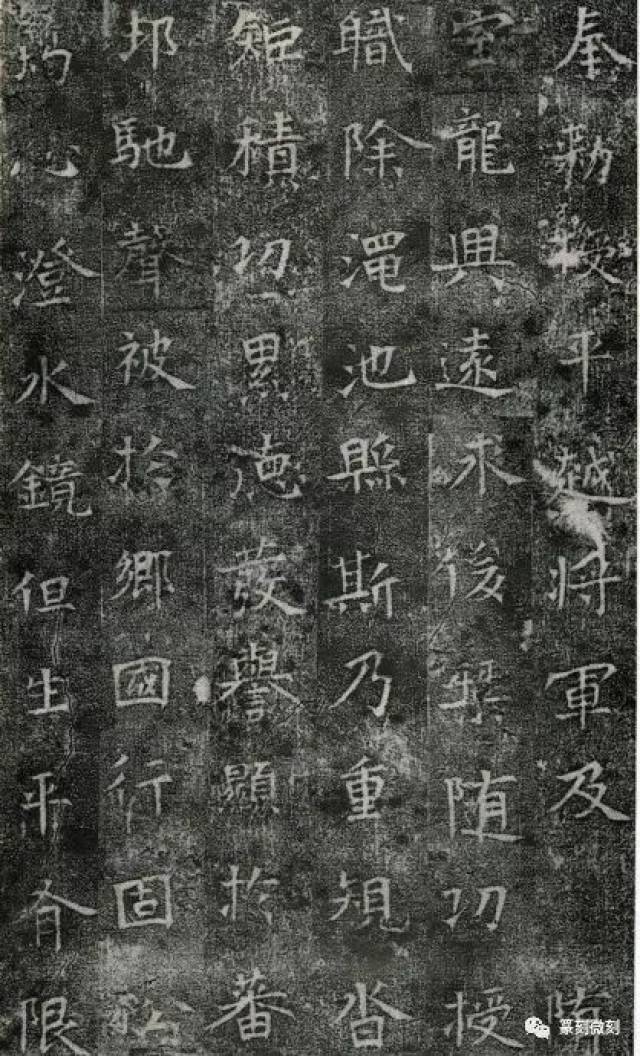 奉勅授平越将軍及隋
室龍興遠求後随功授
職除澠池縣斯乃重規沓
矩積功累德發譽顯於蕃
邦馳聲被於鄉國行固松
筠心澄水鏡但生平有限
篆刻微刻